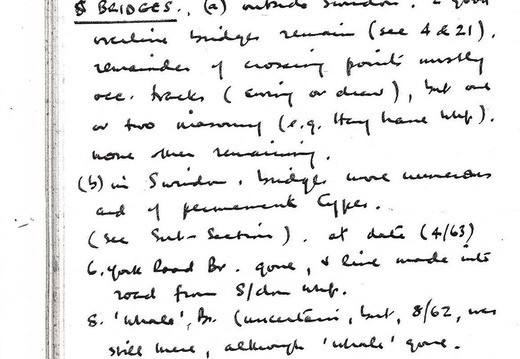 8 BRIDGES. (a) outside Swindon. 2 good
overline bridges remain (see 4 & 21).
remainder of crossing points mostly
occ. tracks (swing or draw), but one
or two masonry (e.g. Hay Lane Whf).
none then remaining.
(b) in Swindon. bridges more numerous
and of permanent types.
(see Sub-Section). at date (4/63)
6. York Road Br. gone, & line made into
road from S/don Whf.
8. 'Whale' Br. (uncertain, but, 8/62, was
still there, although 'Whale' gone.